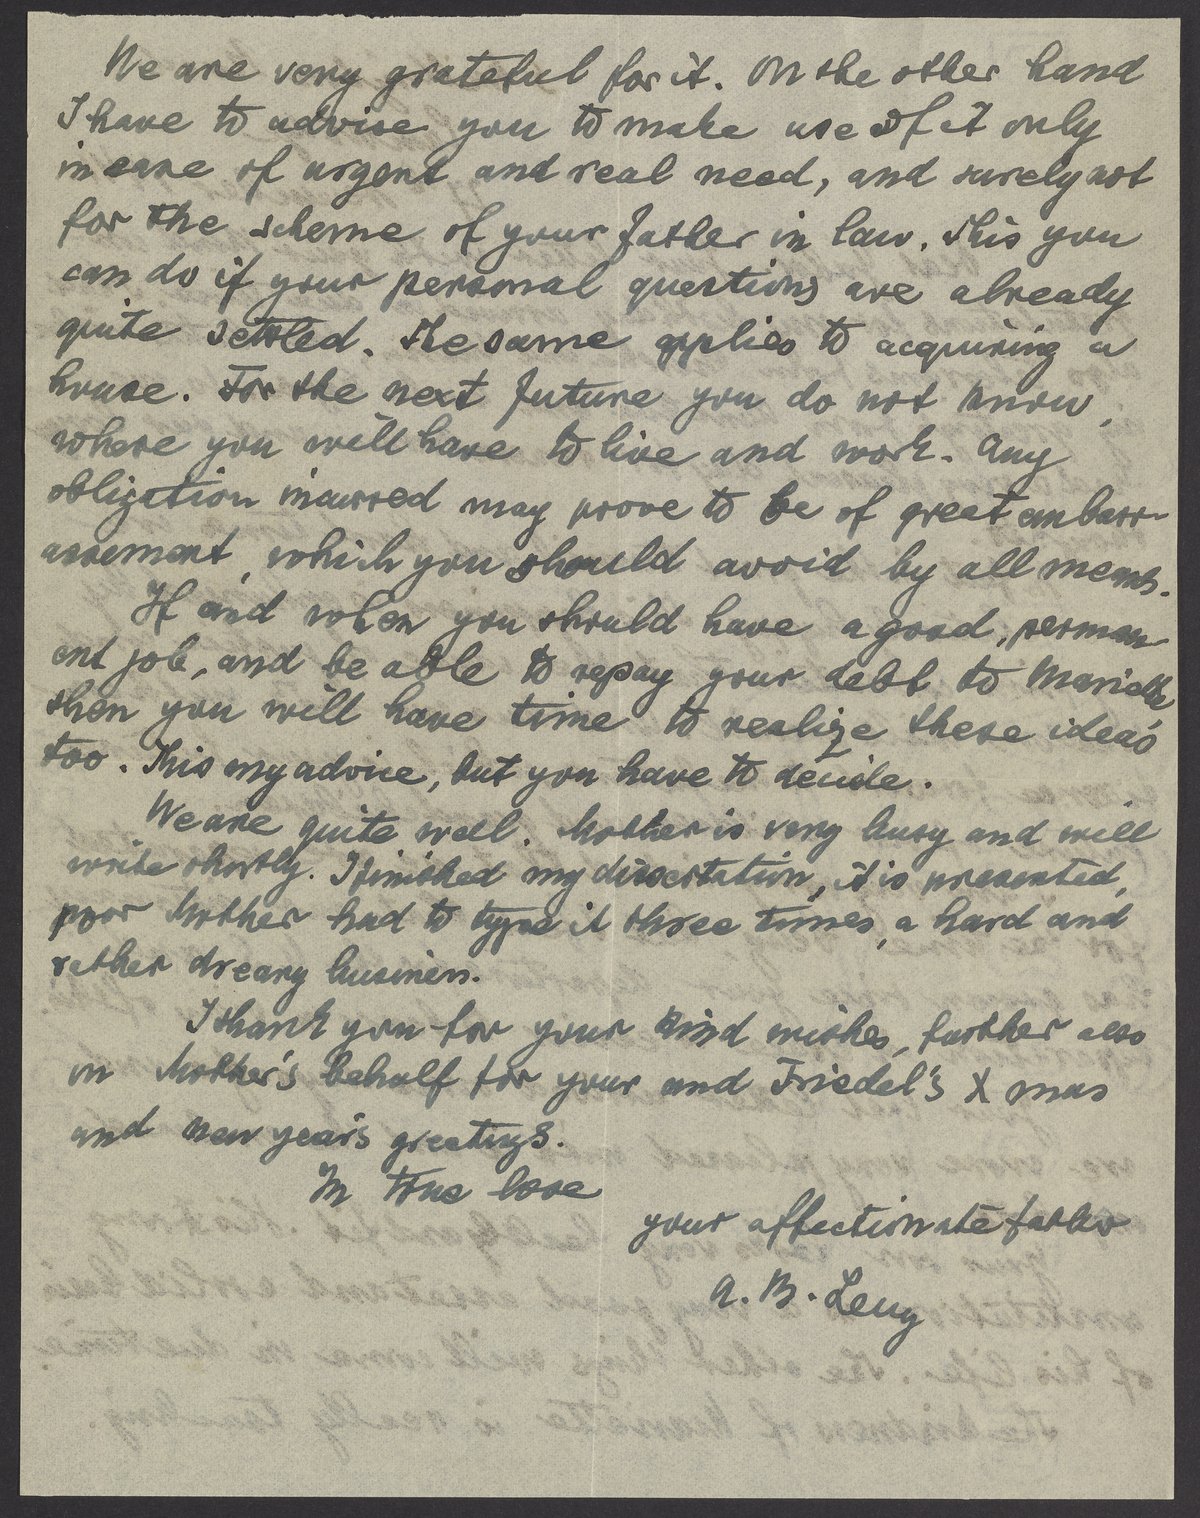 We are very grateful for it. On the other hand
I have to advise you to make use of it only
in case of urgent and real need, and surely not
for the scheme of your father in law. This you
can do if your personal questions are already
quite settled. The same applies to acquiring a
house. For the next future you do not know,
where you will have to live and work. Any
obligation incurred may prove to be of great embarr-
assement, which you should avoid by all means.
If and when you should have a good, perman-
ent job, and be able to repay your debt to Mariette
then you will have time to realize these ideas
too. This my advice, but you have to decide.
We are quite well. Mother is very busy and will
write shortly. I finished my dissertation, it is presented,
poor Mother had to type it three times, a hard and
rather dreary business.
I thank you for your kind wishes, further also
on Mother's behalf for your and Friedel's X mas
and new year's greetings.
In true love
your affectionate father
A. B. Leny